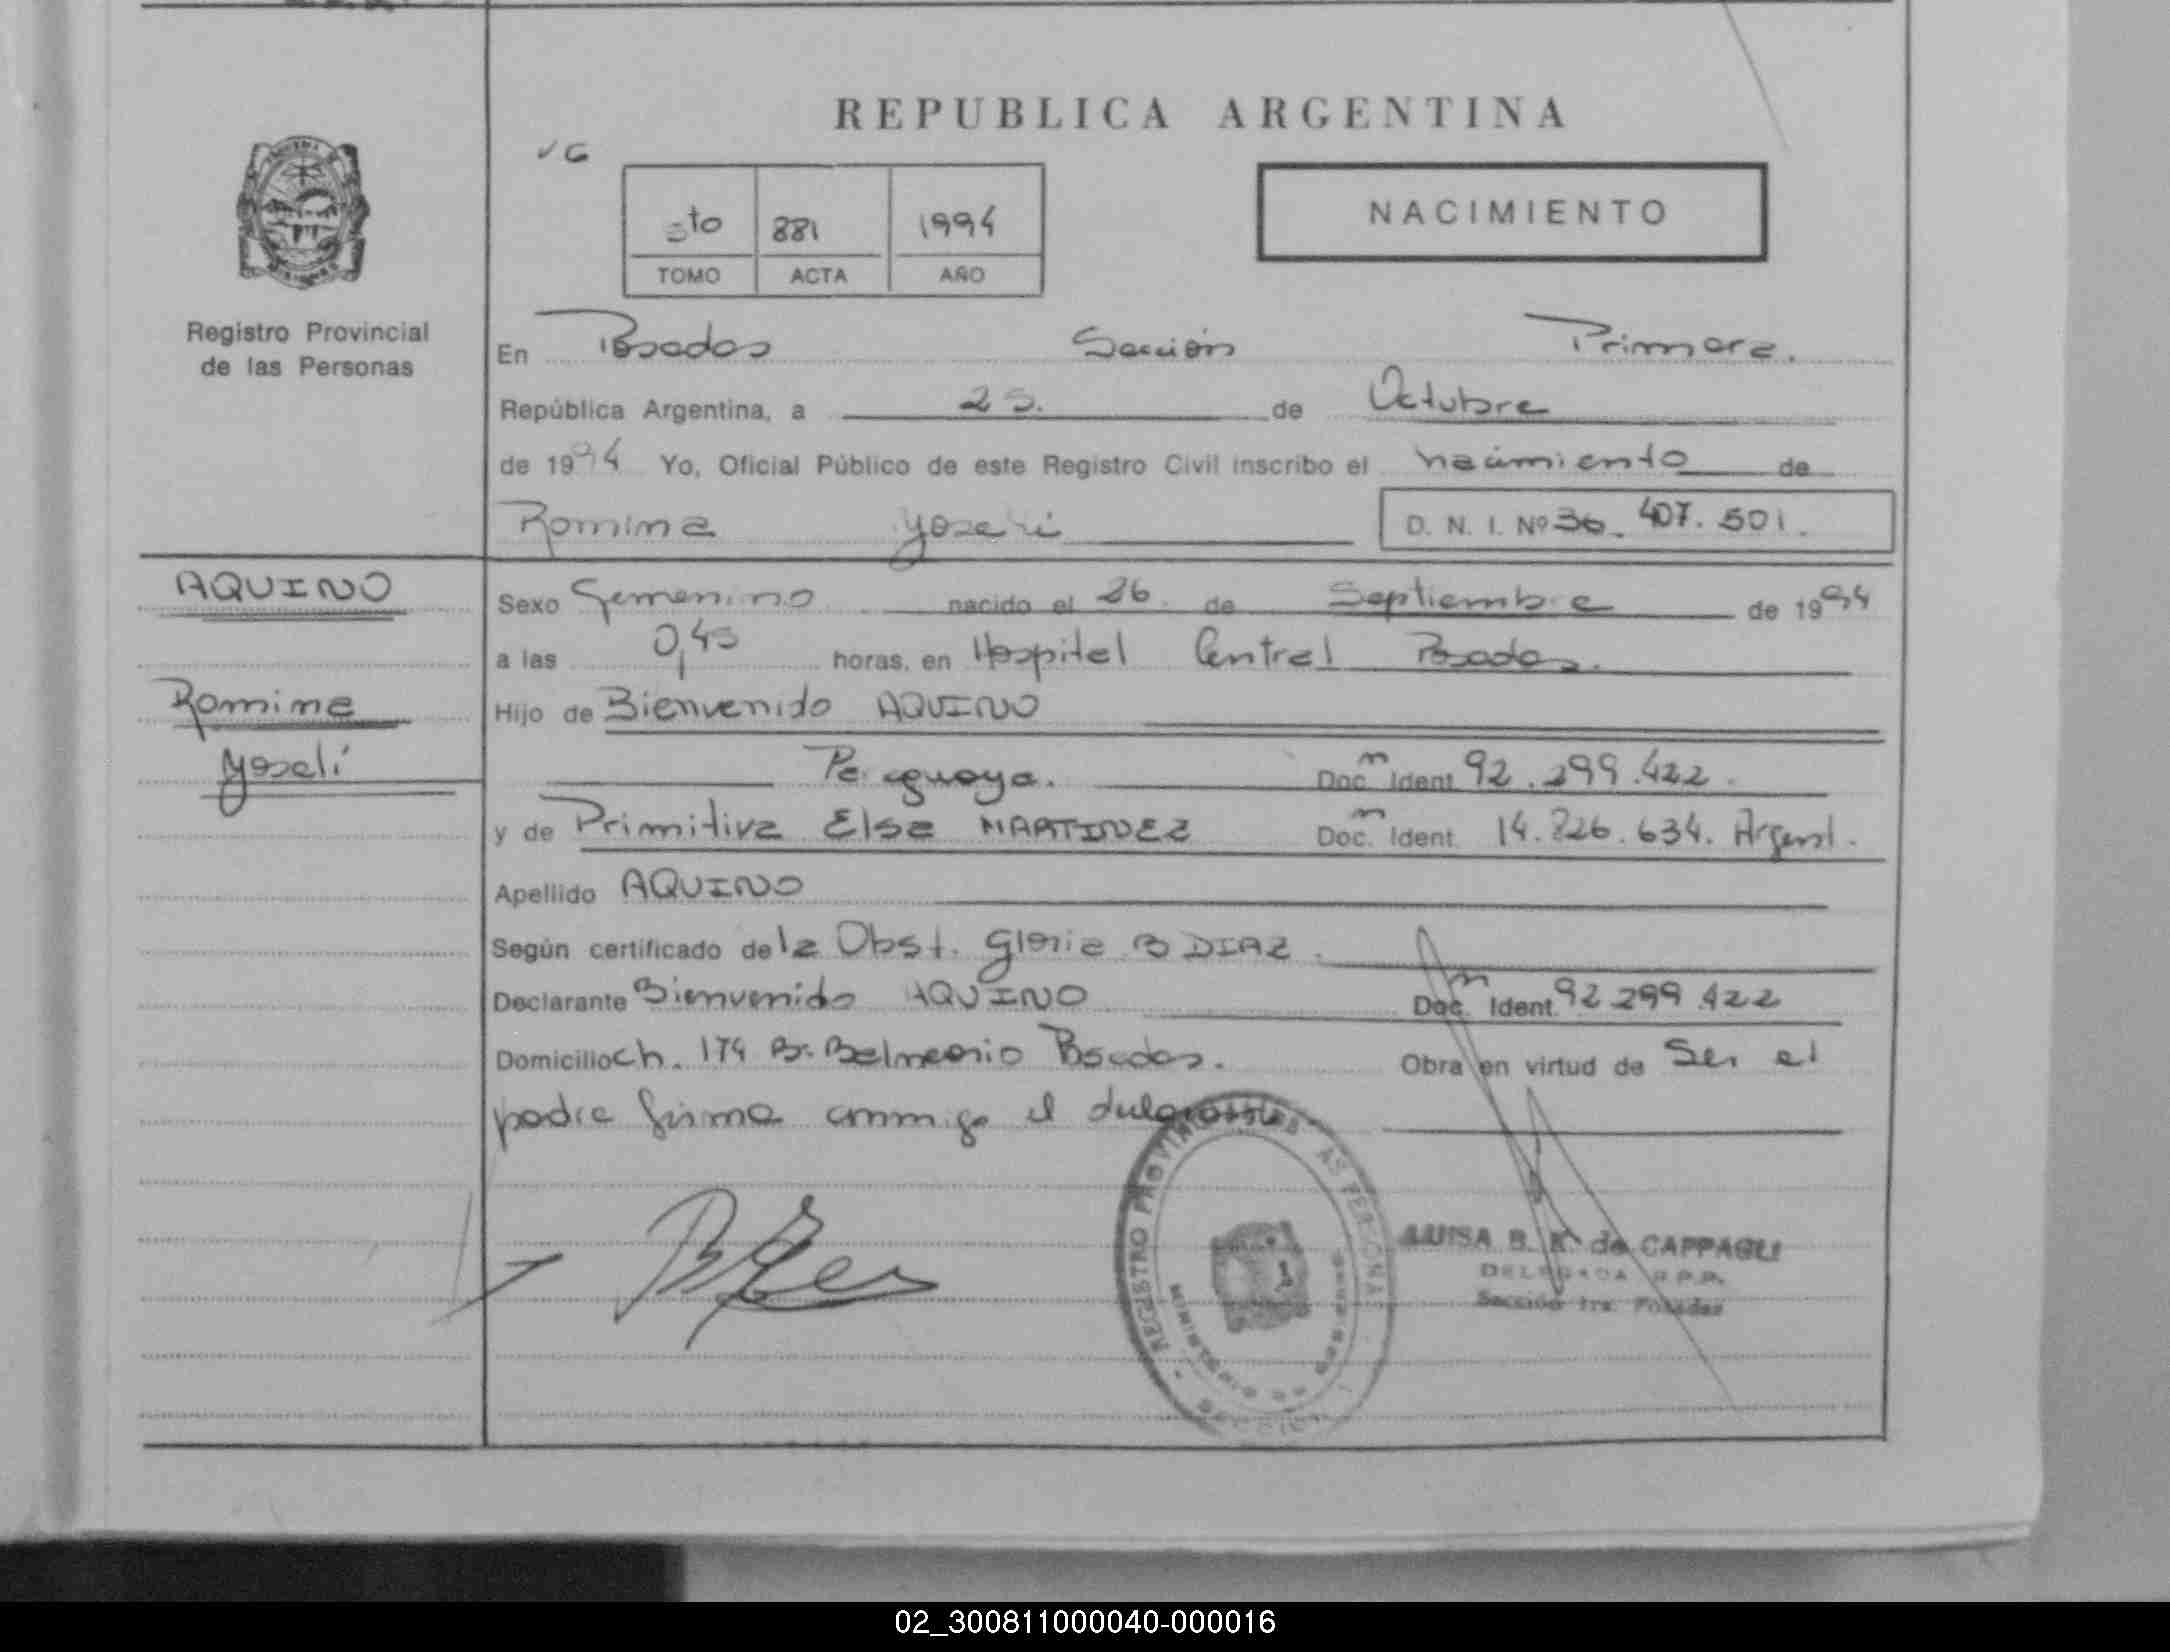 REPUBLICA ARGENTINA
VG
5to 881 1994
TOMO ACTA AÑO
NACIMIENTO
Registro Provincial
de las Personas
En Posadas Sección Primera.
República Argentina, a 25. de Octubre
de 1994 Yo, Oficial Público de este Registro Civil inscribo el nacimiento de
Romina Yoseli
D. N. I. Nº 36. 407. 501.
AQUINO
Romina
Yoseli
Sexo Femenino nacido el 26. de Septiembre de 1994
a las 0,45 horas, en Hospital Central Posadas.
Hijo de Bienvenido AQUINO
Paraguaya. Doc. Ident. 92.299.422.
y de Primitiva Elsa MARTINEZ Doc. Ident. 14.826.634. Argent.
Apellido AQUINO
Según certificado de la Obst. Gloria B DIAZ.
Declarante Bienvenido AQUINO Doc. Ident. 92 299.422
Domicilio Ch. 174 B. Belneario Posadas. Obra en virtud de Ser el
padre firma conmigo el
REGISTRO PROVINCIAL DE LAS PERSONAS
MINISTERIO DE GOBIERNO
LUISA B. K. de CAPPAGLI
DELEGADA R.P.P.
Sección 1ra. Posadas
02_300811000040-000016